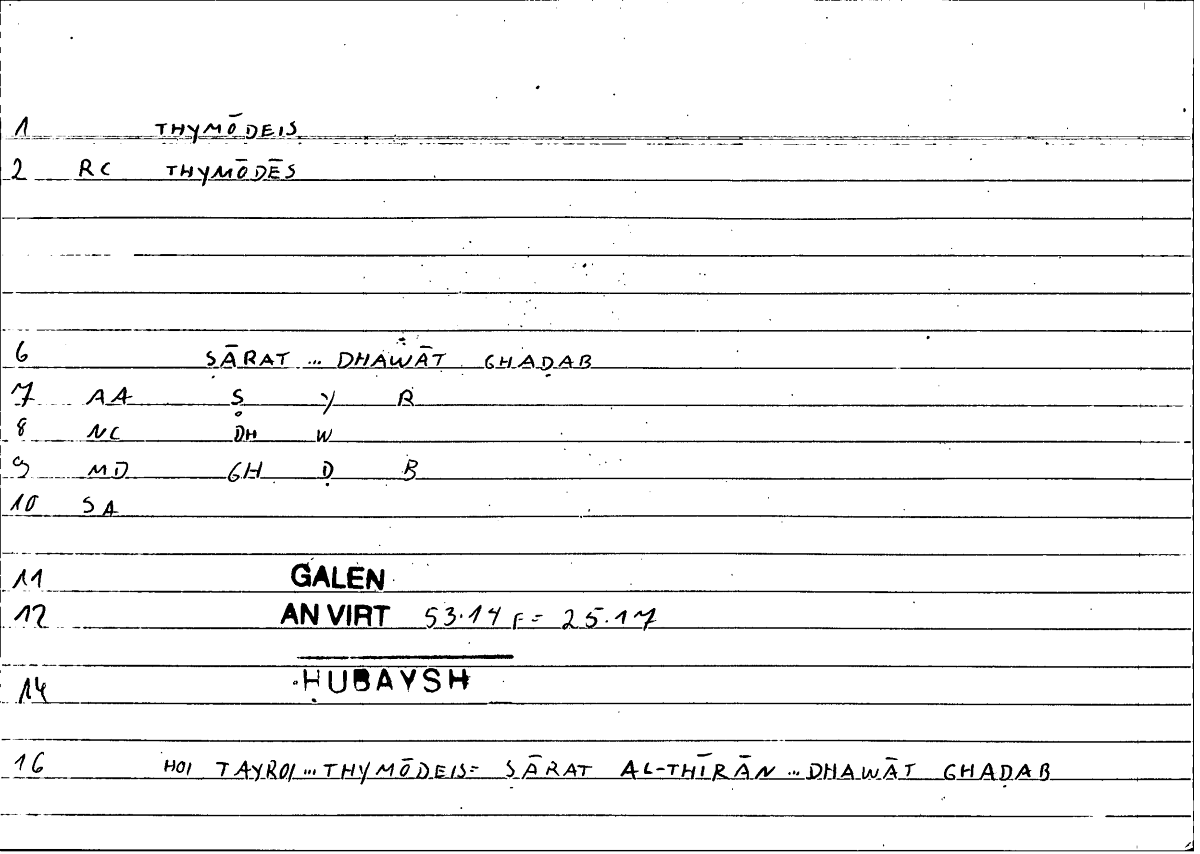 1 THYMŌDEIS
2 RC THYMŌDĒS
6 SĀRAT ... DHAWĀT GHAḌAB
7 AA Ṣ Y R
8 NC DH W
9 MD GH Ḍ B
10 SA
11 GALEN
12 AN VIRT 53.14 F = 25.17
14 ḤUBAYSH
16 HOI TAYROI ... THYMŌDEIS = SĀRAT AL-THĪRĀN ... DHAWĀT GHAḌAB